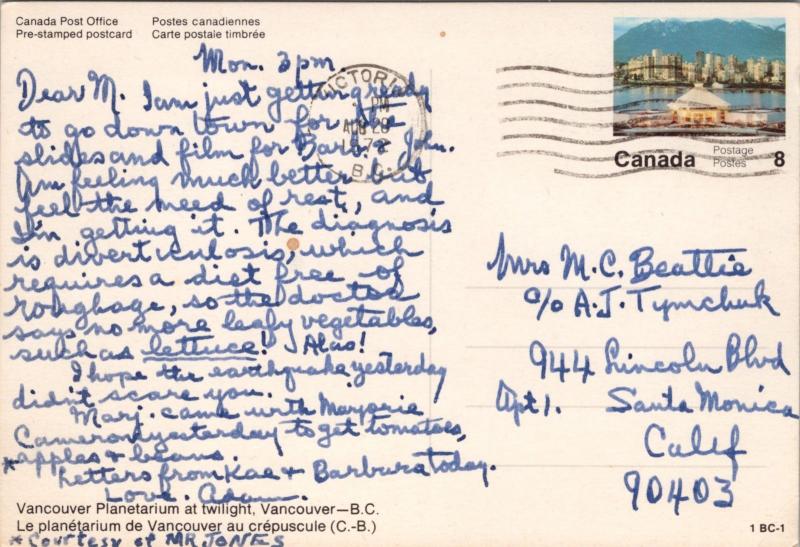 Canada Post Office Postes canadiennes
Pre-stamped postcard Carte postale timbrée
Mon. 3pm.
Dear M. I am just getting ready
to go down town for the
slides and film for Barb & John.
Am feeling much better but
feel the need of rest, and
I'm getting it. The diagnosis
is diverticulosis, which
requires a diet free of
roughage, so the doctor
says no more leafy vegetables,
such as lettuce! Alas!
I hope the earthquake yesterday
didn't scare you.
Marj. came with Marjorie
Cameron yesterday to get tomatoes,
*apples & beans.
Letters from Kae & Barbara today.
Love. Adam.
Vancouver Planetarium at twilight, Vancouver—B.C.
Le planétarium de Vancouver au crépuscule (C.-B.)
*Courtesy of MR JONES
VICTORIA
PM
AUG 28
B.C.
Canada
Postage
Postes
8
Mrs M. C. Beattie
c/o A. J. Tymchuk
944 Lincoln Blvd
Apt 1. Santa Monica
Calif
90403
1 BC-1